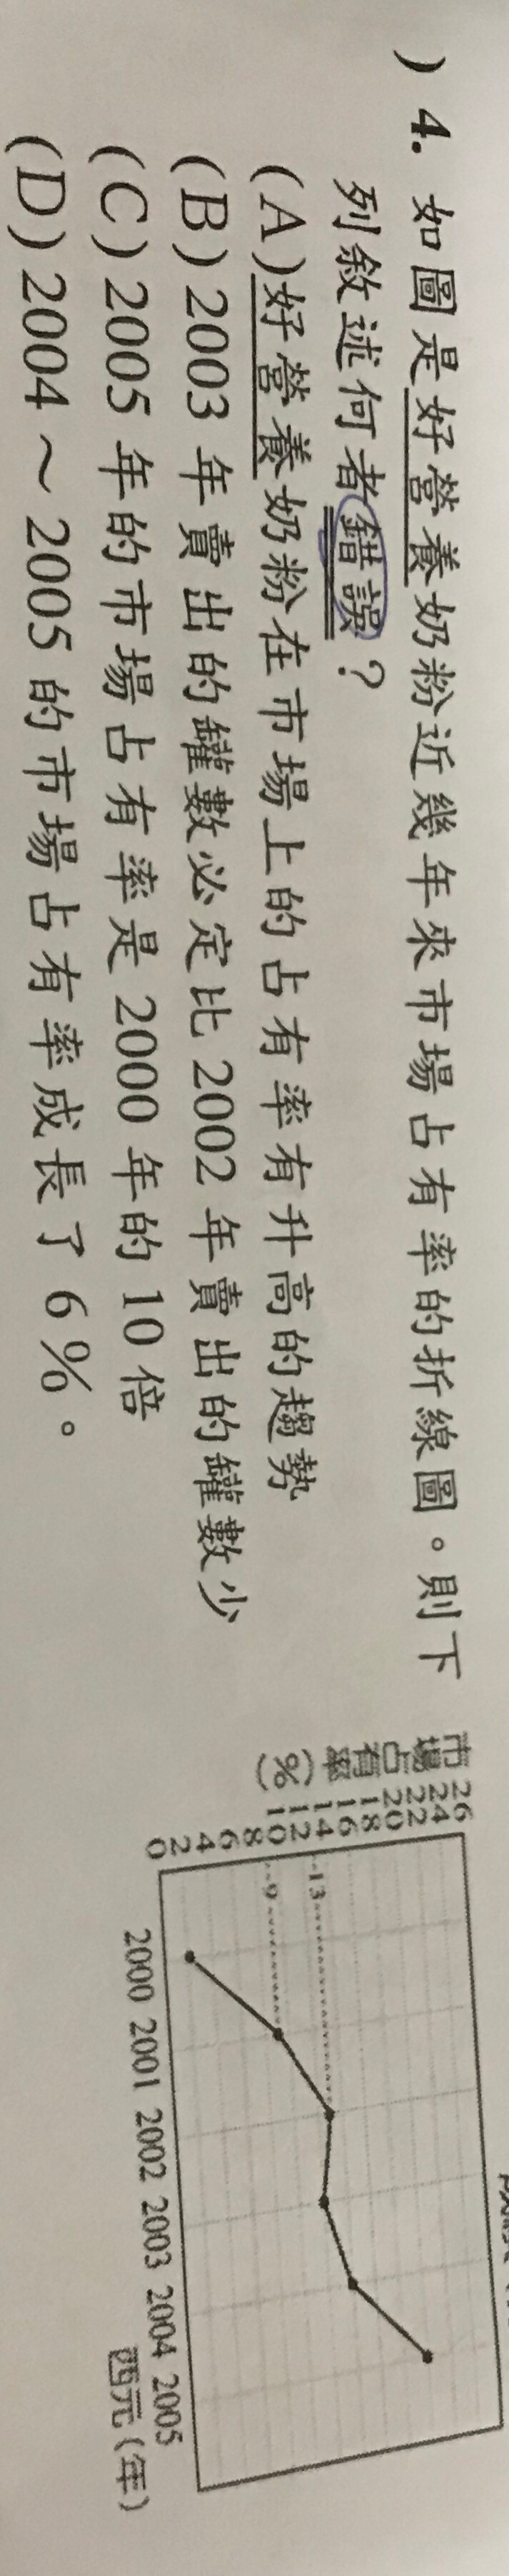 ) 4. 如圖是好營養奶粉近幾年來市場占有率的折線圖。則下
列敘述何者錯誤？
(A)好營養奶粉在市場上的占有率有升高的趨勢
(B)2003 年賣出的罐數必定比 2002 年賣出的罐數少
(C)2005 年的市場占有率是 2000 年的 10 倍
(D)2004～2005 的市場占有率成長了 6%。
市場占有率(%)
26
24
22
20
18
16
14
12
10
8
6
4
2
0
13
9
2000 2001 2002 2003 2004 2005
西元(年)